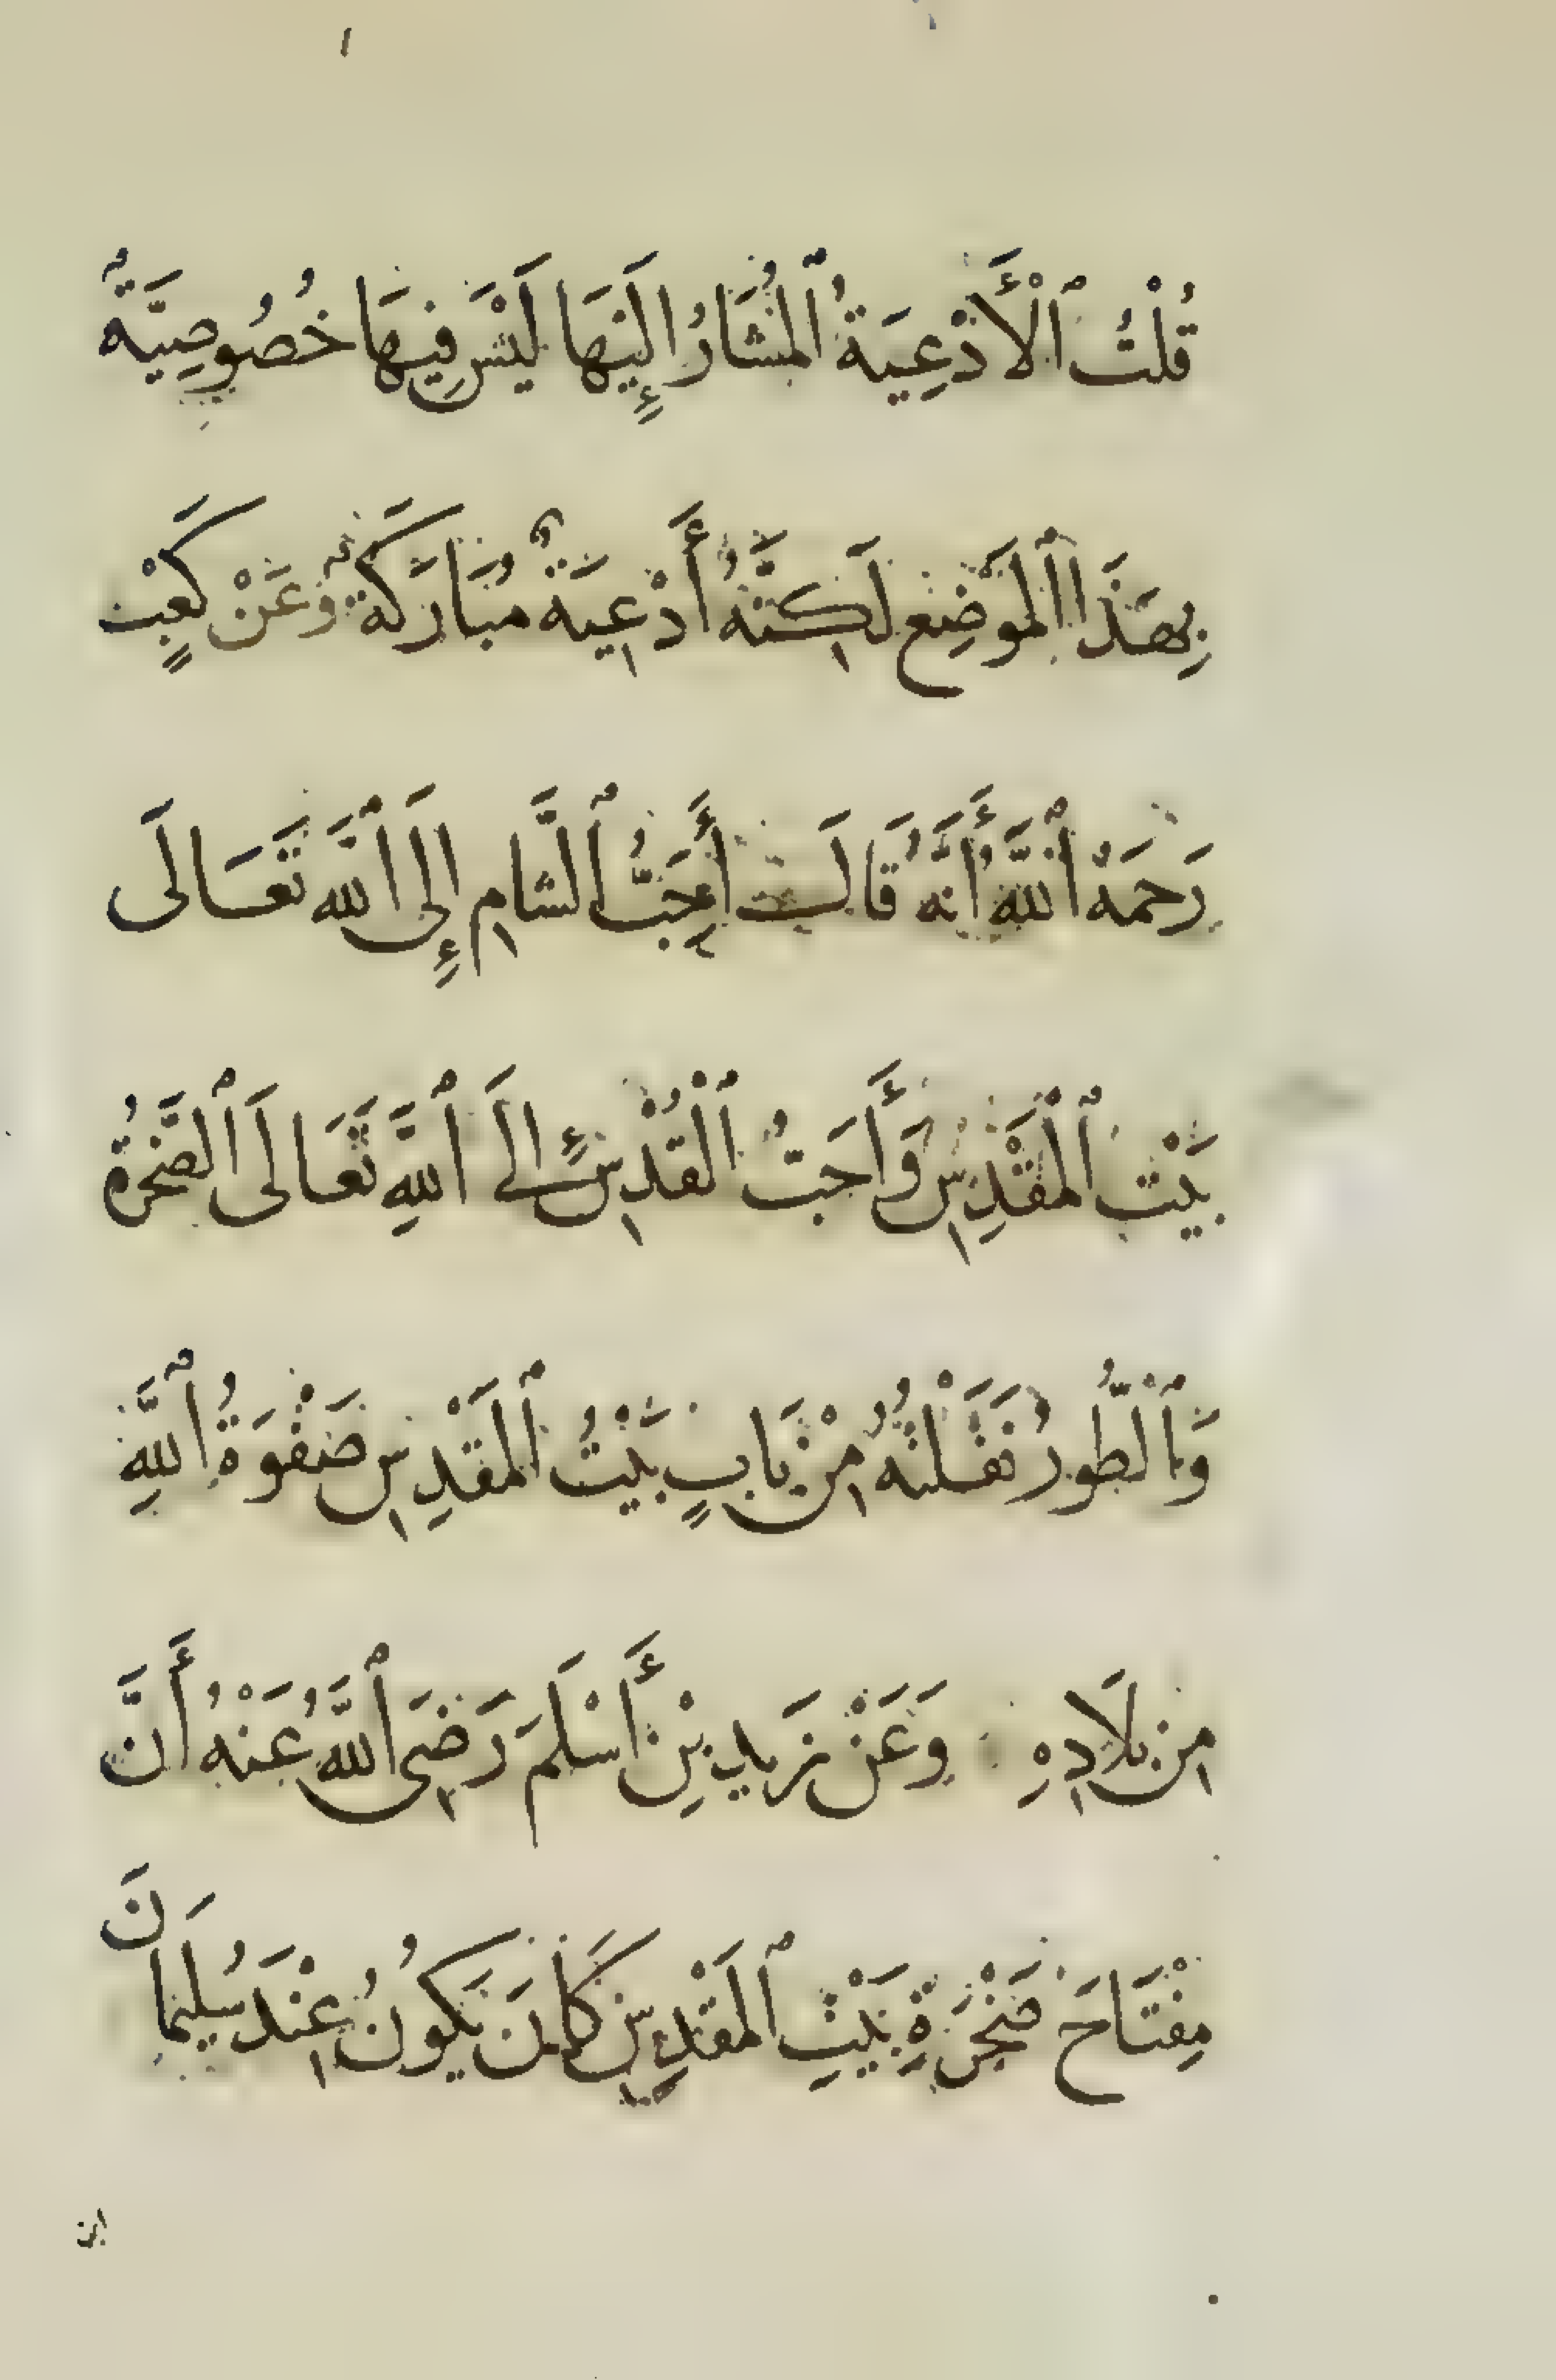 قُلْتُ ٱلْأَدْعِيَةُ ٱلْمُشَارُ إِلَيْهَا لَيْسَ فِيهَا خُصُوصِيَّةٌ
بِهَذَا ٱلْمَوْضِعِ لَكِنَّهُ أَدْعِيَةٌ مُبَارَكَةٌ وَعَنْ كَعْبٍ
رَحِمَهُ ٱللَّهُ أَنَّهُ قَالَ أَحَبُّ ٱلشَّامِ إِلَى ٱللَّهِ تَعَالَى
بَيْتُ ٱلْمَقْدِسِ وَأَحَبُّ ٱلْقُدْسِ إِلَى ٱللَّهِ تَعَالَى ٱلصَّخْرَةُ
وَٱلطُّورُ نَقَلْتُهُ مِنْ بَابٍ بَيْتُ ٱلْمَقْدِسِ صَفْوَةُ ٱللَّهِ
مِنْ بِلَادِهِ وَعَنْ زَيْدِ بْنِ أَسْلَمَ رَضِيَ ٱللَّهُ عَنْهُ أَنَّ
مِفْتَاحَ صَخْرَةِ بَيْتِ ٱلْمَقْدِسِ كَانَ يَكُونُ عِنْدَ سُلَيْمَانَ
ابن